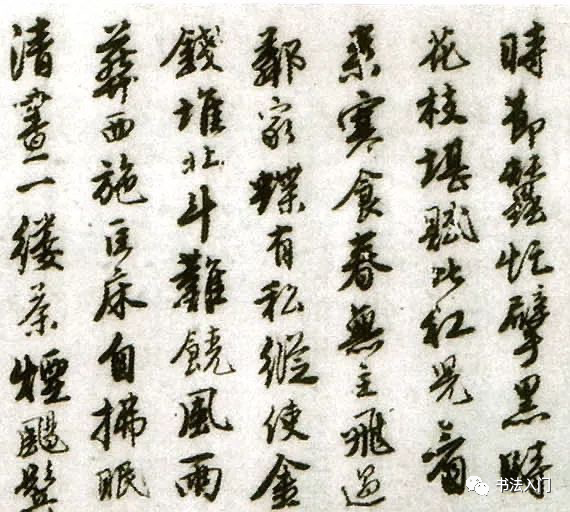 時節蠶忙擘黑時
花枝堪賦比紅兒看
來寒食春無主飛過
鄰家蝶有私縱使金
錢堆北斗難饒風雨
葬西施匡床自拂眠
清晝一縷茶煙颺鬢
书法入门